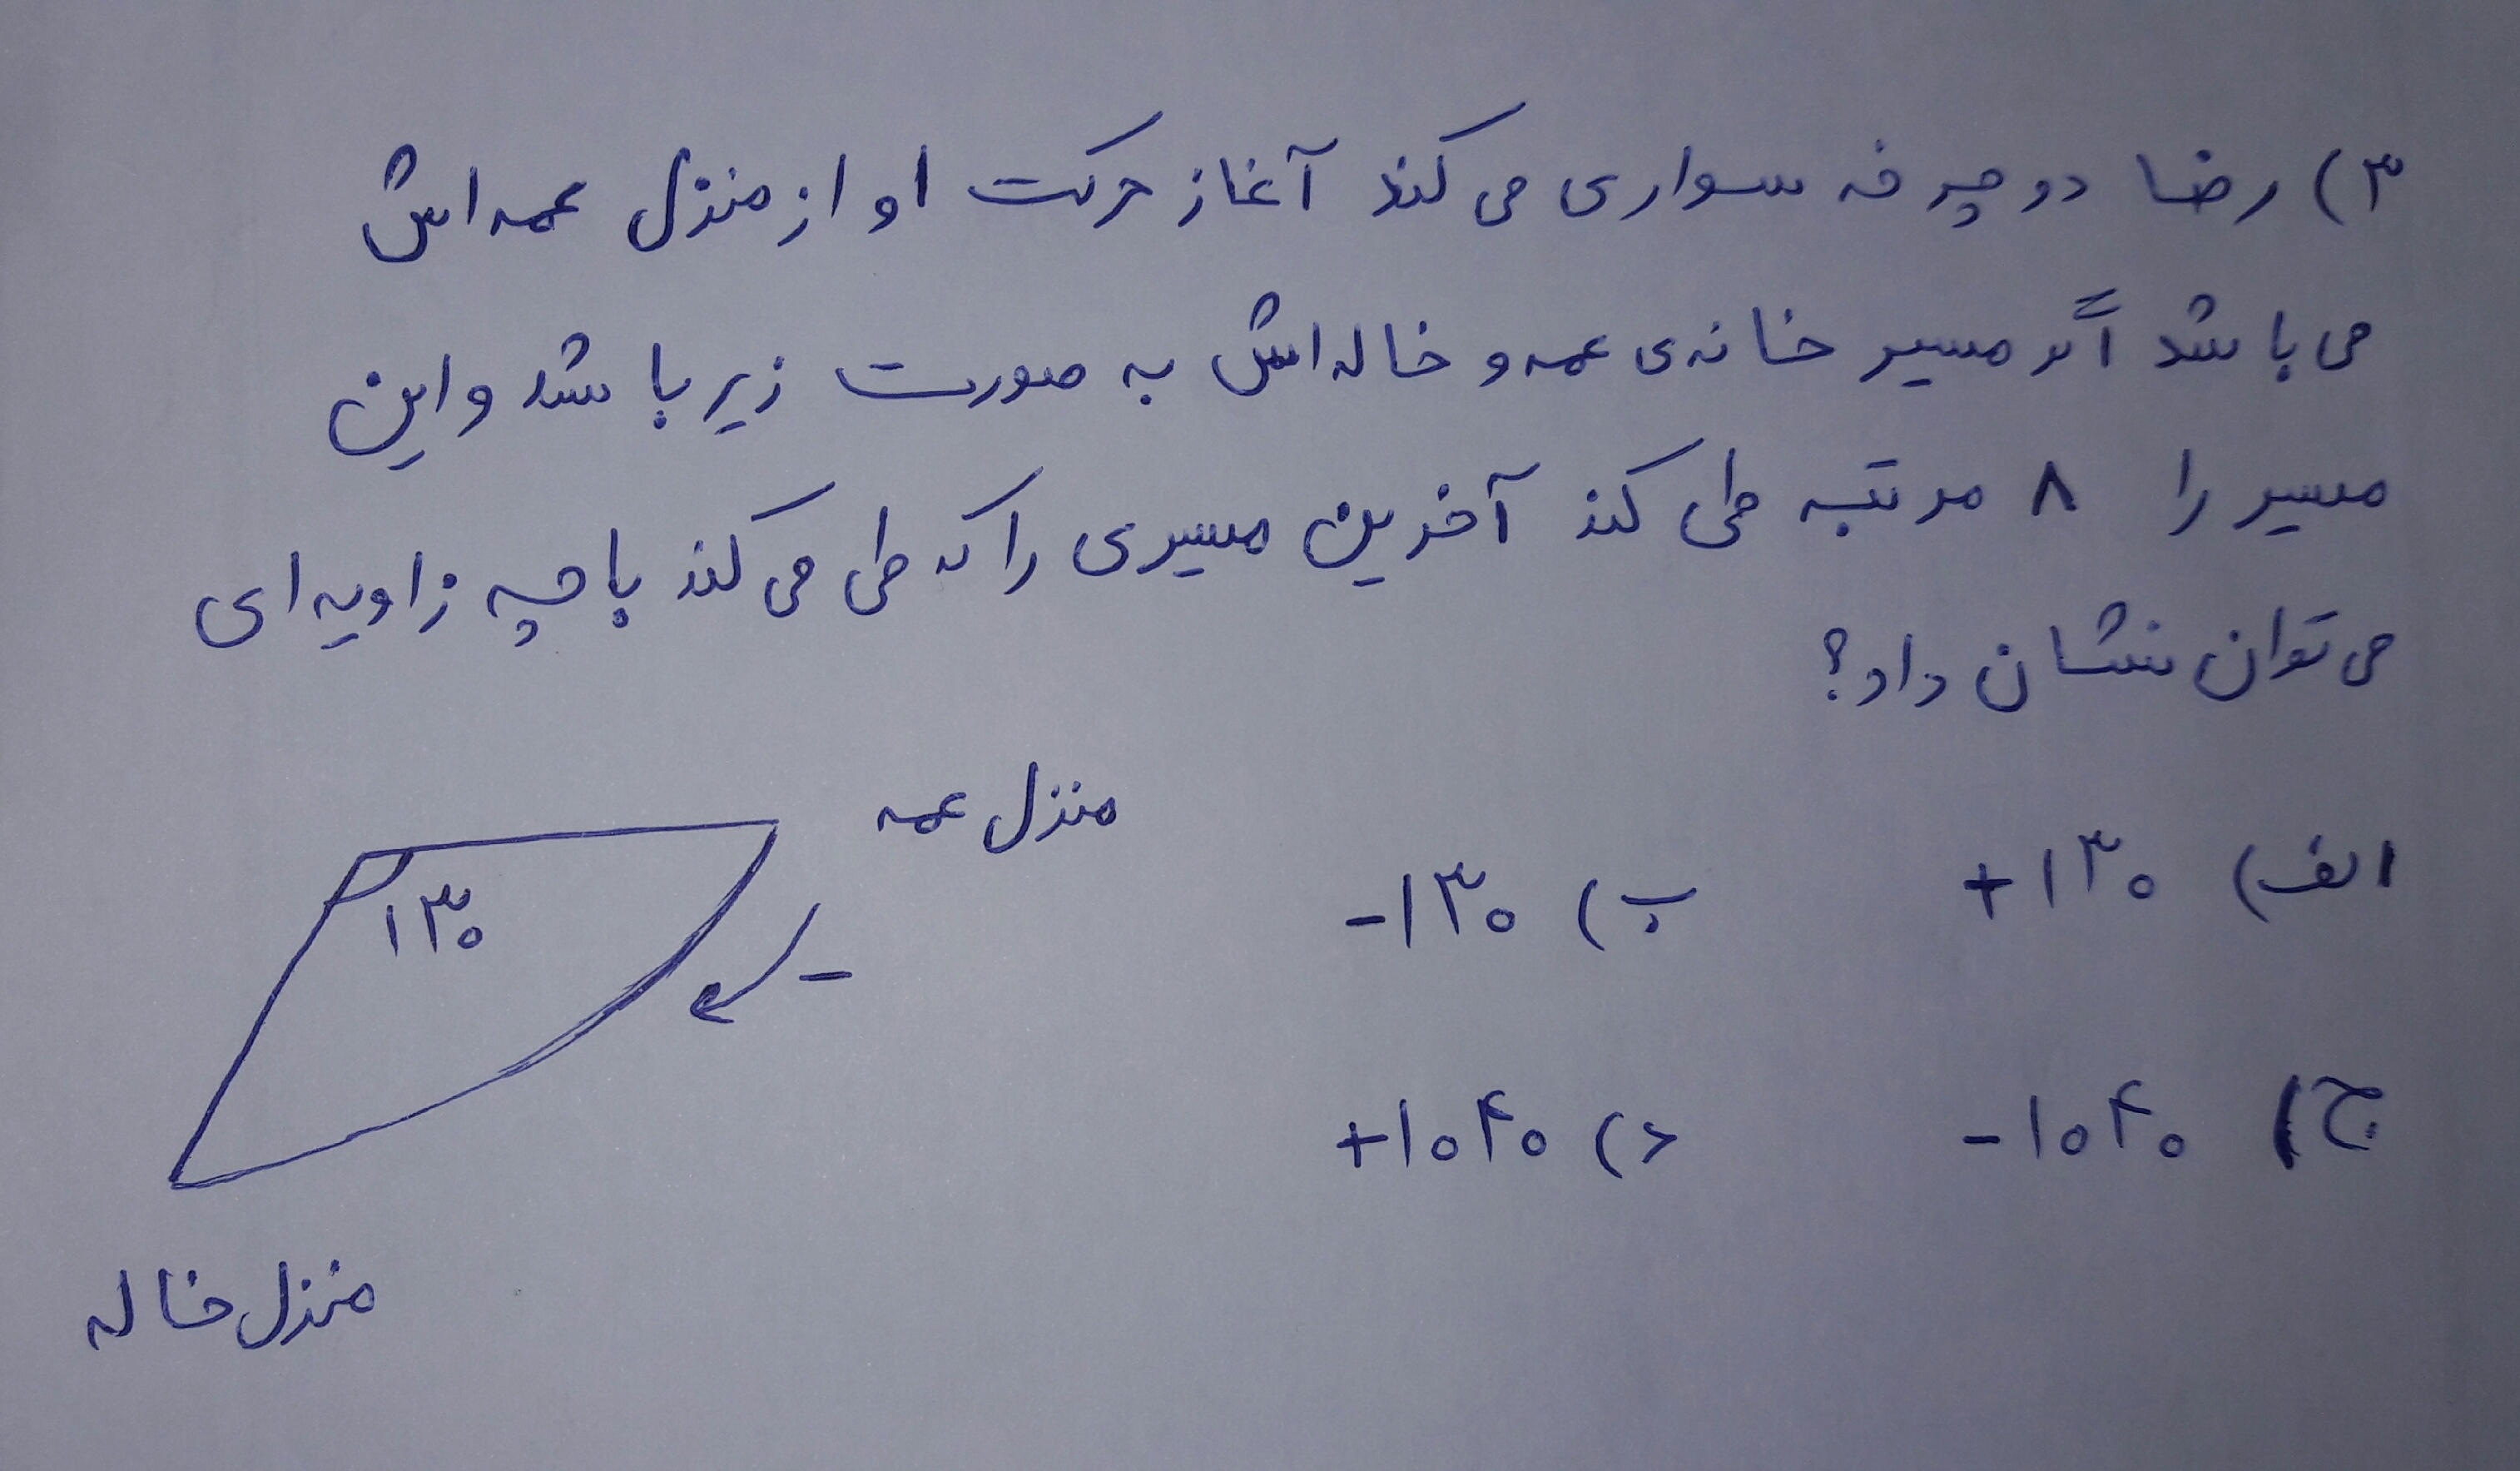 ۳) رضا دوچرخه سواری می کند آغاز حرکت او از منزل عمه اش
می باشد اگر مسیر خانه ی عمه و خاله اش به صورت زیر باشد و این
مسیر را ۸ مرتبه طی کند آخرین مسیری را که طی می کند با چه زاویه ای
می توان نشان داد؟
الف) +۱۳۰
ب) -۱۳۰
ج) -۱۰۴۰
د) +۱۰۴۰
منزل عمه
۱۳۰
-
منزل خاله